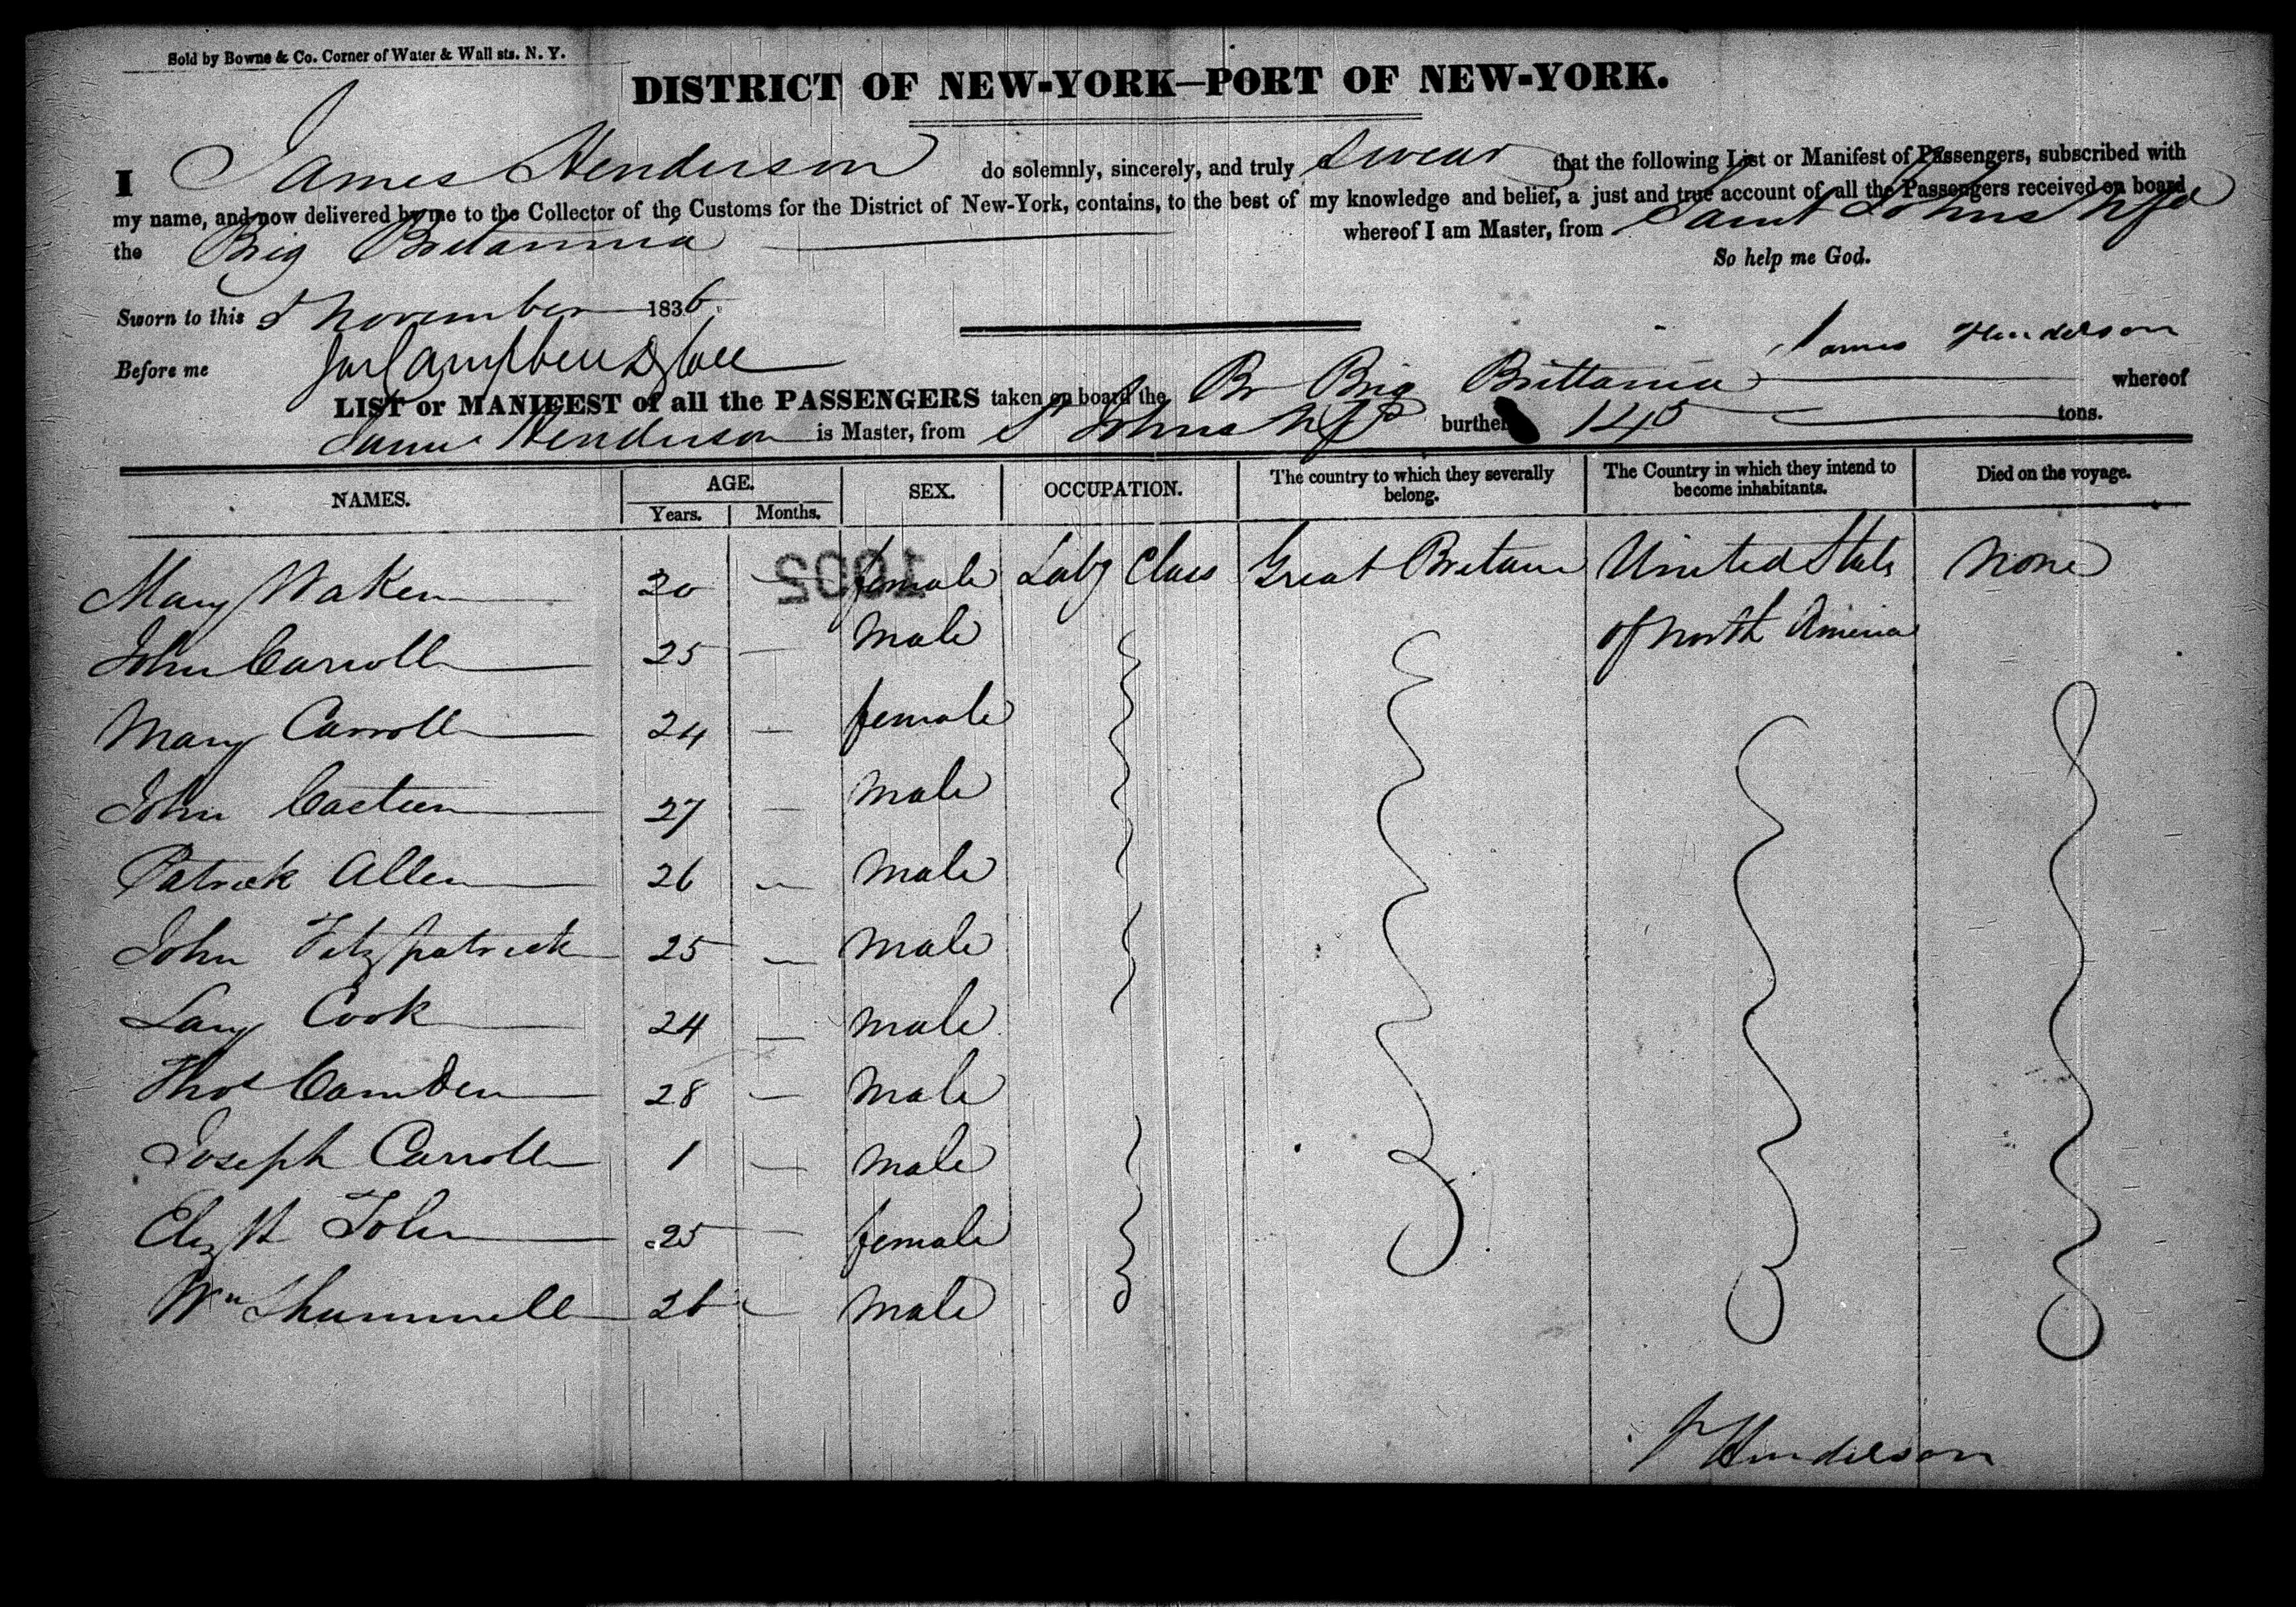 Sold by Bowne & Co. Corner of Water & Wall sts. N. Y.
DISTRICT OF NEW-YORK—PORT OF NEW-YORK.
I James Henderson do solemnly, sincerely, and truly swear that the following List or Manifest of Passengers, subscribed with
my name, and now delivered by me to the Collector of the Customs for the District of New-York, contains, to the best of my knowledge and belief, a just and true account of all the Passengers received on board
the Brig Britannia whereof I am Master, from Saint Johns Nfld
So help me God.
Sworn to this November 1836
Before me James Henderson
LIST or MANIFEST of all the PASSENGERS taken on board the Br Brig Brittania whereof
James Henderson is Master, from St Johns Nfld burthen 145 tons.
NAMES. AGE. Years. Months. SEX. OCCUPATION. The country to which they severally belong. The Country in which they intend to become inhabitants. Died on the voyage.
1002
Mary Waken 20 — female Labg Class Great Britain United State None
John Carroll 25 — male of North America
Mary Carroll 24 — female
John 27 — male
Patrick Allen 26 — male
John Fitzpatrick 25 — male
Lary Cook 24 — male
Thos Camden 28 — male
Joseph Carroll 1 — male
Elizth 25 — female
Wm 26 — male
J Henderson